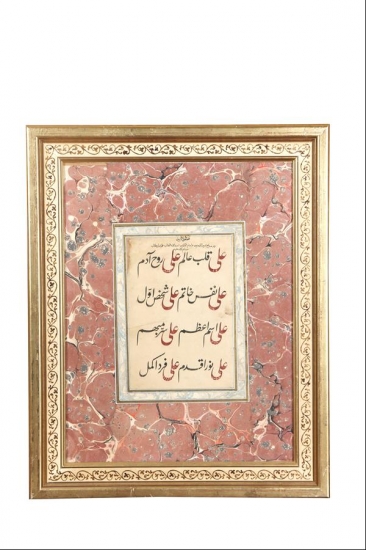 علی قلب عالم علی روح آدم
علی نفس خاتم علی شخص اول
علی اسم اعظم علی سر مبهم
علی نور اقدم علی فرد اکمل